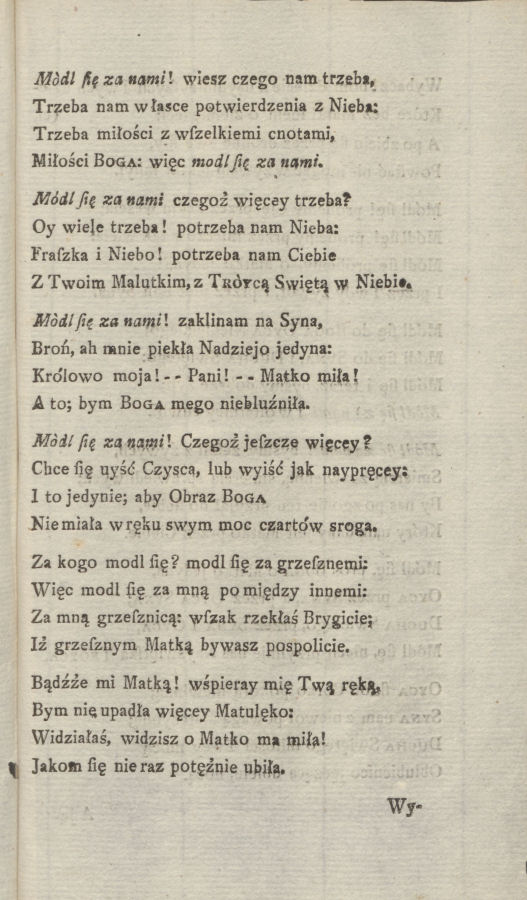 Mòdl ſię za nami! wiesz czego nam trzeba,
Trzeba nam w łasce potwierdzenia z Nieba:
Trzeba miłości z wſzelkiemi cnotami,
Miłości BOGA: więc modl ſię za nami.
Módl ſię za nami czegoż więcey trzeba?
Oy wiele trzeba! potrzeba nam Nieba:
Fraſzka i Niebo! potrzeba nam Ciebie
Z Twoim Malutkim, z TRÒYCĄ Swiętą w Niebie.
Mòdl ſię za nami! zaklinam na Syna,
Broń, ah mnie piekła Nadziejo jedyna:
Królowo moja! - - Pani! - - Matko miła!
A to; bym BOGA mego niebluźniła.
Mòdl ſię za nami! Czegoż jeſzcze więcey?
Chce ſię uyść Czysca, lub wyiść jak naypręcey:
I to jedynie; aby Obraz BOGA
Nie miała w ręku swym moc czartów sroga.
Za kogo modl ſię? modl ſię za grzeſznemi:
Więc modl ſię za mną pomiędzy innemi:
Za mną grzeſznicą: wſzak rzekłaś Brygicie;
Iż grzeſznym Matką bywasz pospolicie.
Bądźże mi Matką! wśpieray mię Twą ręką,
Bym nie upadła więcey Matulęko:
Widziałaś, widzisz o Matko ma miła!
Jakom ſię nie raz potężnie ubiła.
Wy-